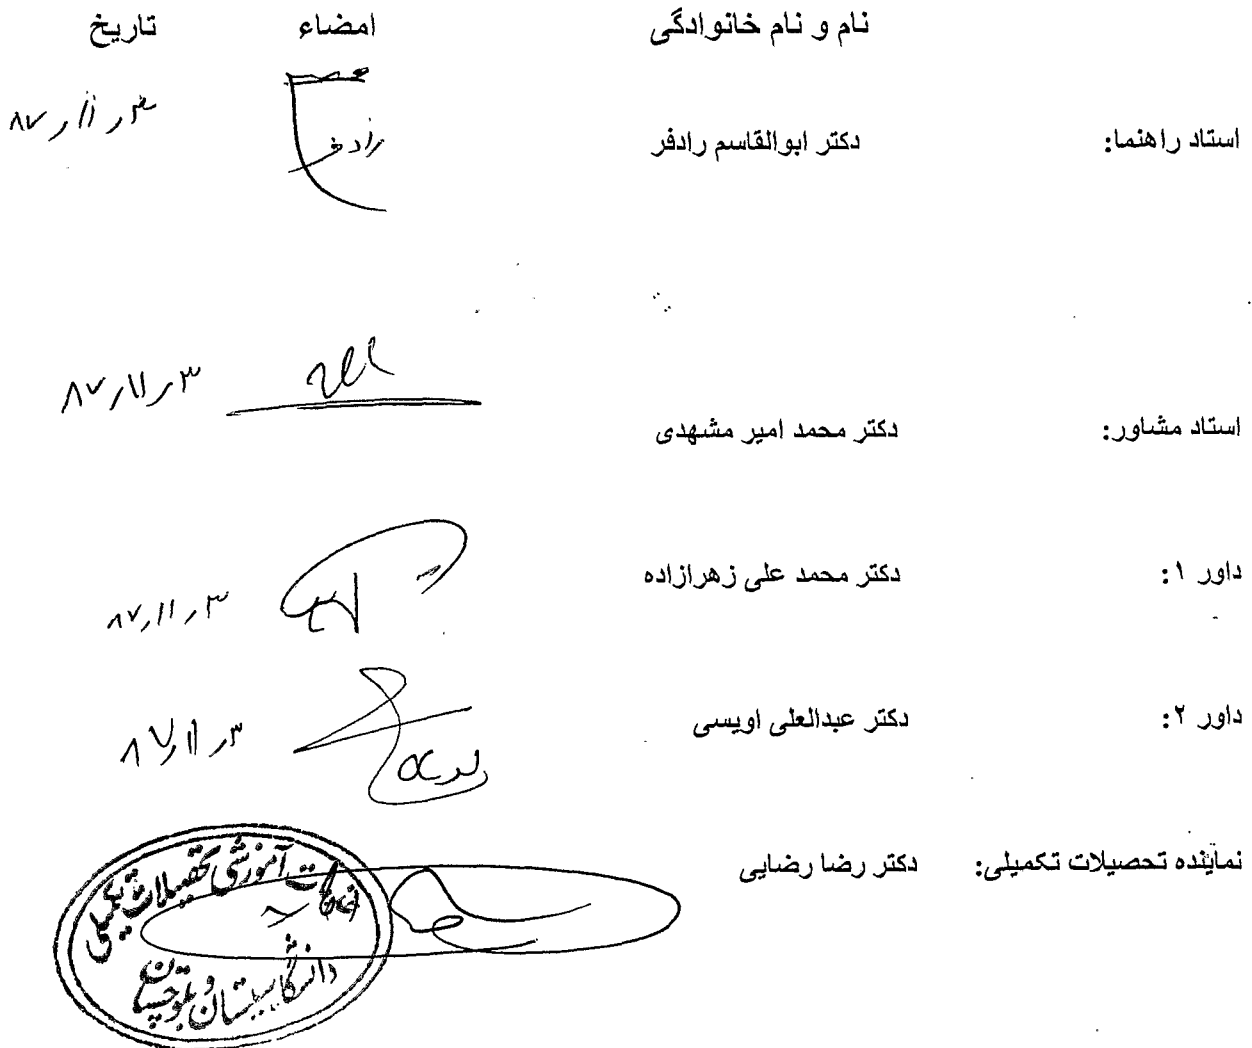 نام و نام خانوادگی امضاء تاریخ
استاد راهنما: دکتر ابوالقاسم رادفر ۳ ر ۱۱ ر ۸۷
استاد مشاور: دکتر محمد امیر مشهدی ۳ ر ۱۱ ر ۸۷
داور ۱: دکتر محمد علی زهرازاده ۳ ر ۱۱ ر ۸۷
داور ۲: دکتر عبدالعلی اویسی ۳ ر ۱۱ ر ۸۷
نماینده تحصیلات تکمیلی: دکتر رضا رضایی
آموزشی تحصیلات تکمیلی
دانشگاه سیستان و بلوچستان